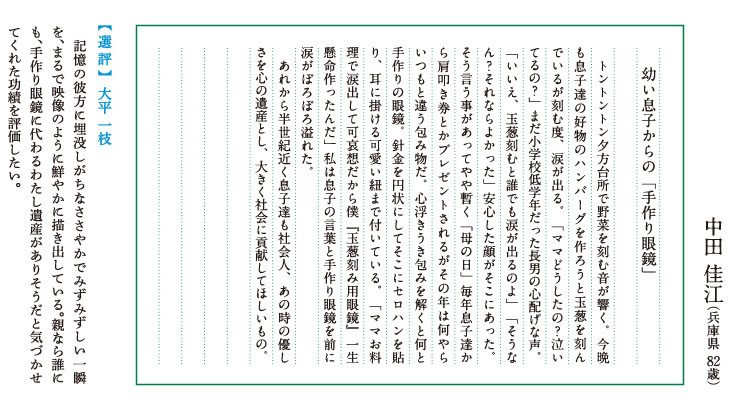 中田 佳江（兵庫県 82歳）
幼い息子からの「手作り眼鏡」
トントントン夕方台所で野菜を刻む音が響く。今晩
も息子達の好物のハンバーグを作ろうと玉葱を刻ん
でいるが刻む度、涙が出る。「ママどうしたの？泣い
てるの？」まだ小学校低学年だった長男の心配げな声。
「いいえ、玉葱刻むと誰でも涙が出るのよ」「そうな
ん？それならよかった」安心した顔がそこにあった。
そう言う事があってやや暫く「母の日」毎年息子達か
ら肩叩き券とかプレゼントされるがその年は何やら
いつもと違う包み物だ。心浮きうき包みを解くと何と
手作りの眼鏡。針金を円状にしてそこにセロハンを貼
り、耳に掛ける可愛い紐まで付いている。「ママお料
理で涙出して可哀想だから僕『玉葱刻み用眼鏡』一生
懸命作ったんだ」私は息子の言葉と手作り眼鏡を前に
涙がぼろぼろ溢れた。
あれから半世紀近く息子達も社会人、あの時の優し
さを心の遺産とし、大きく社会に貢献してほしいもの。
【選評】大平 一枝
記憶の彼方に埋没しがちなささやかでみずみずしい一瞬
を、まるで映像のように鮮やかに描き出している。親なら誰に
も、手作り眼鏡に代わるわたし遺産がありそうだと気づかせ
てくれた功績を評価したい。